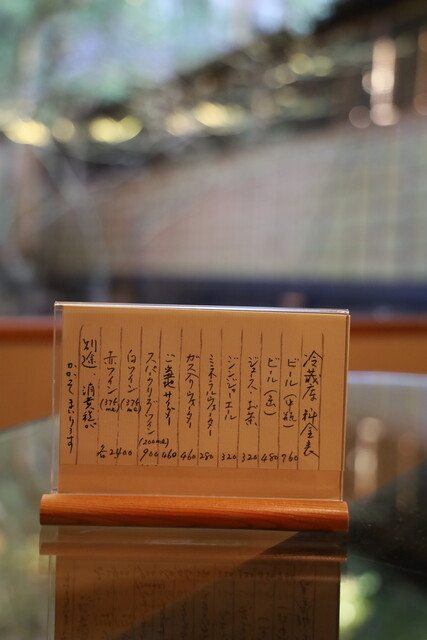 冷蔵庫 料金表
ビール(中瓶) 760
ビール(缶) 480
ジュース・お茶 320
ジンジャーエール 320
ミネラルウォーター 280
ガスペリウォーター 460
ご当地サイダー 460
スパークリングワイン(200ml) 900
白ワイン(375ml)
赤ワイン(375ml) 各2400
別途 消費税が
かかってまいります